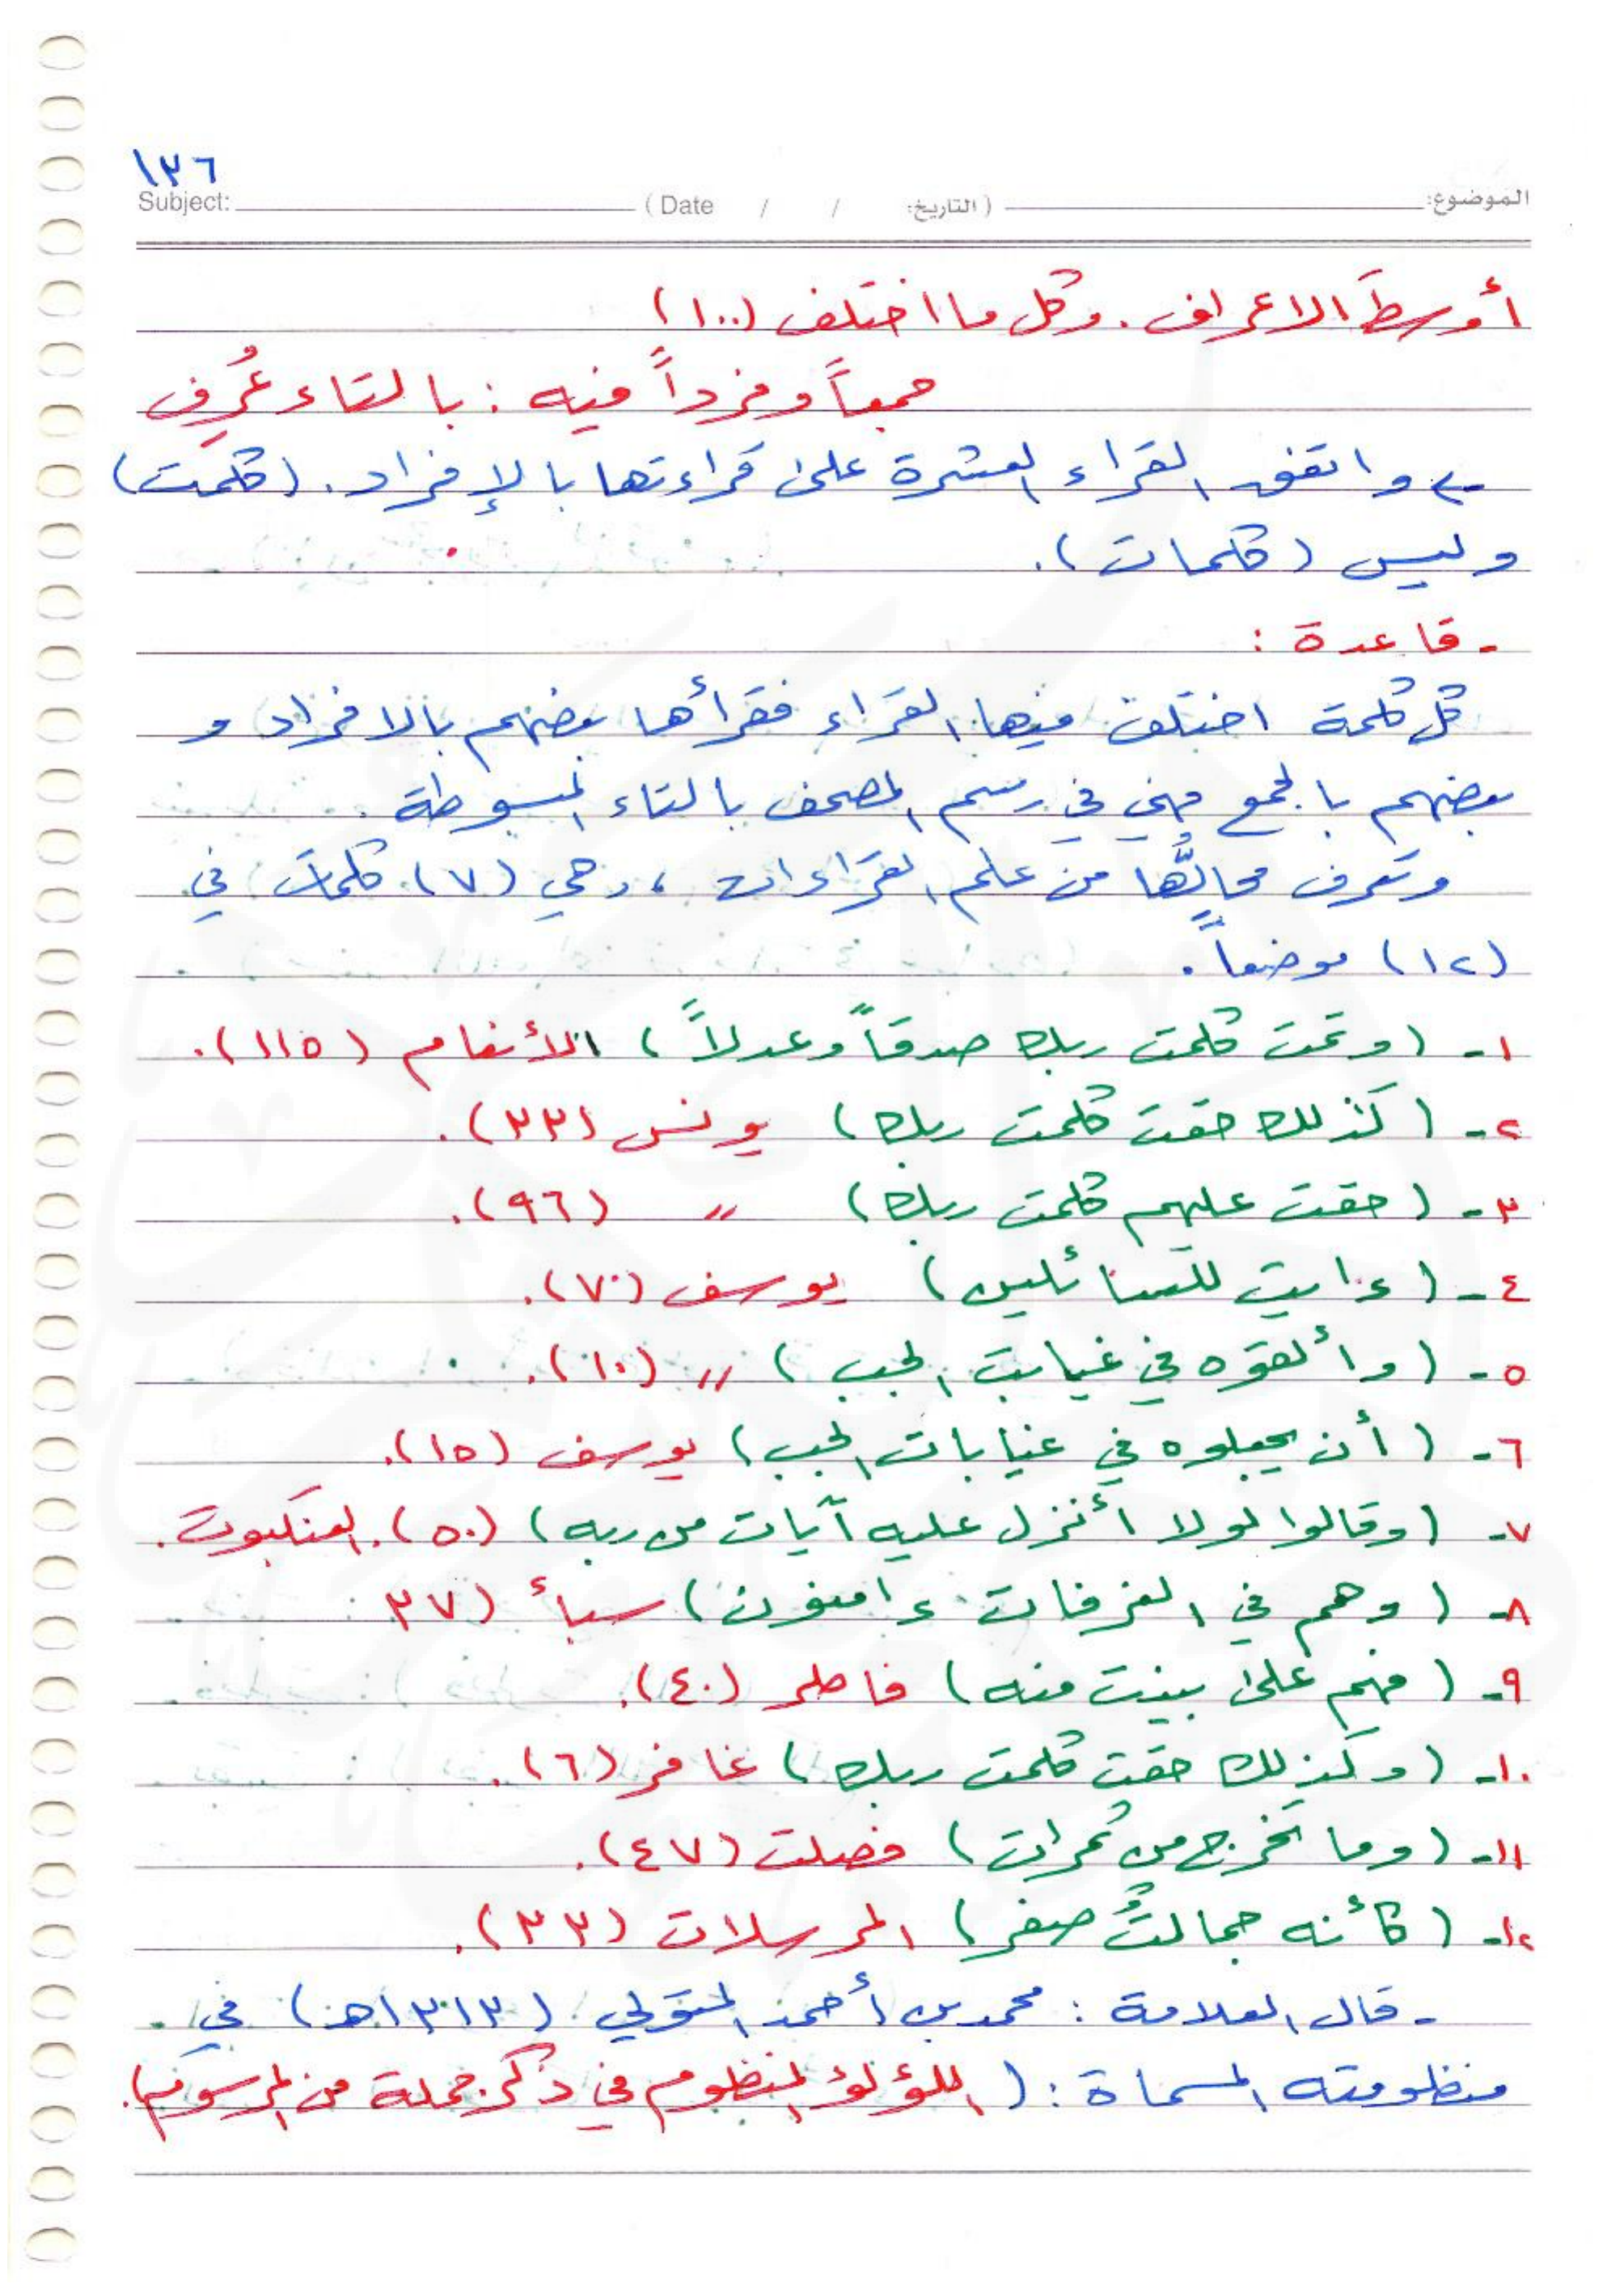 ١٣٦
Subject: (Date / / التاريخ:) الموضوع:
أوسطَ الاعراف . وكل ما اختلف (١٠٠)
جمعاً وفرداً فيه : بالتاء عُرِف
- واتفق القراء العشرة على قراءتها بالإفراد . (كلمت)
وليس (كلمات).
- قاعدة :
كل كلمة اختلف فيها القراء فقرأها بعضهم بالافراد و
بعضهم بالجمع فهي في رسم المصحف بالتاء المبسوطة .
وتعرف محالُّها من علم القراءات ، وهي (٧) كلمات في
(١٢) موضعاً .
١- (وتمت كلمت ربك صدقاً وعدلاً) الأنعام (١١٥).
٢- (كذلك حقت كلمت ربك) يونس (٣٣).
٣- (حقت عليهم كلمت ربك) " (٩٦).
٤- (ءايت للسائلين) يوسف (٧).
٥- (وألقوه في غيابت الجب) " (١٠).
٦- (أن يجعلوه في غيابات الجب) يوسف (١٥).
٧- (وقالوا لولا أنزل عليه آيات من ربه) (٥٠). العنكبوت.
٨- (وهم في الغرفات ءامنون) سبأ (٣٧
٩- (فهم على بينت منه) فاطر (٤٠).
١٠- (وكذلك حقت كلمت ربك) غافر (٦).
١١- (وما تخرج من ثمرات) فصلت (٤٧).
١٢- (كأنه جمالتٌ صفر) المرسلات (٣٣).
- قال العلامة : محمد بن أحمد المتولي (١٣١٣هـ) في
منظومته المسماة : (اللؤلؤ المنظوم في ذكر جملة من المرسوم).